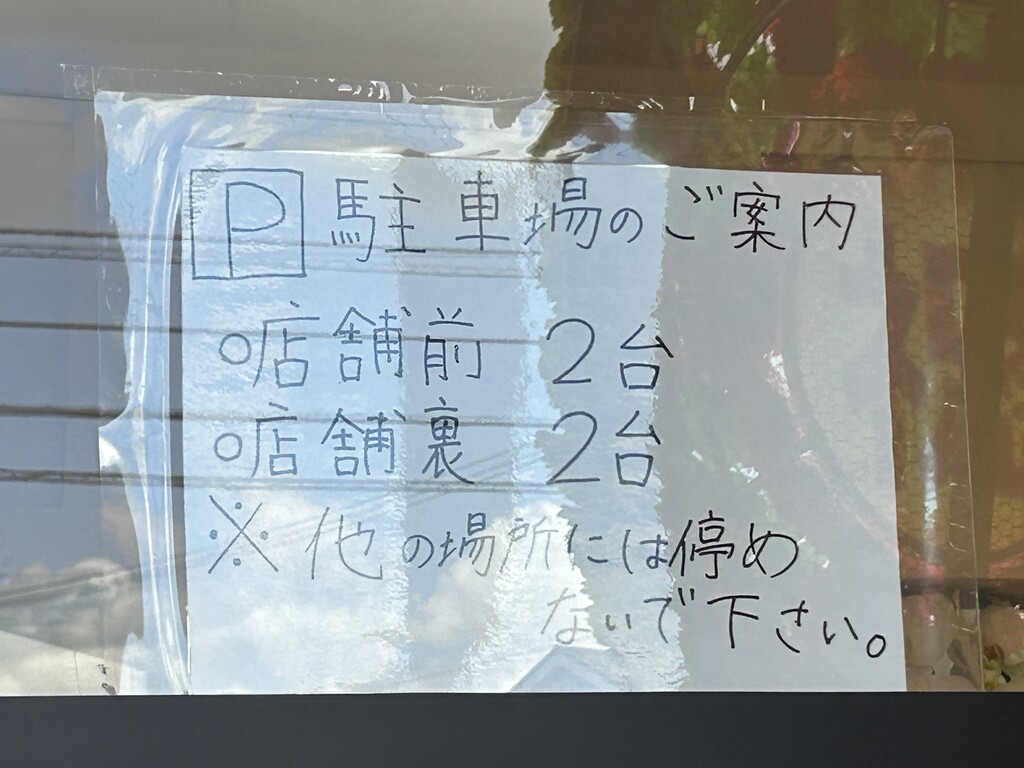 P 駐車場のご案内
○店舗前 2台
○店舗裏 2台
※他の場所には停め
ないで下さい。